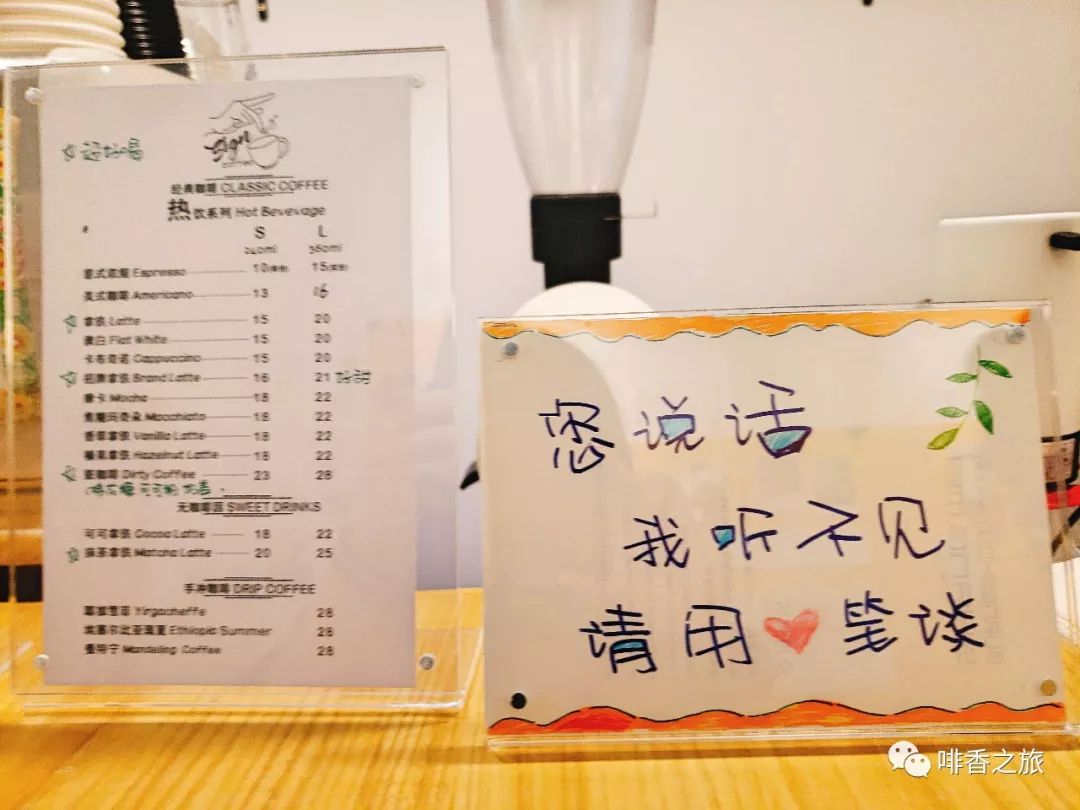 好好喝
Sign
经典咖啡 CLASSIC COFFEE
热饮系列 Hot Bevevage
S L
240ml 360ml
意式浓缩 Espresso 10 15
美式咖啡 Americano 13 16
拿铁 Latte 15 20
澳白 Flat White 15 20
卡布奇诺 Cappuccino 15 20
招牌拿铁 Brand Latte 16 21 好甜
摩卡 Mocha 18 22
焦糖玛奇朵 Macchiato 18 22
香草拿铁 Vanilla Latte 18 22
榛果拿铁 Hazelnut Latte 18 22
脏咖啡 Dirty Coffee 23 28
无咖啡因 SWEET DRINKS
可可拿铁 Cocoa Latte 18 22
抹茶拿铁 Matcha Latte 20 25
手冲咖啡 DRIP COFFEE
耶加雪菲 Yirgacheffe 28
埃塞尔比亚 Ethiopia Summer 28
曼特宁 Mandeling Coffee 28
您说话
我听不见
请用笔谈
啡香之旅